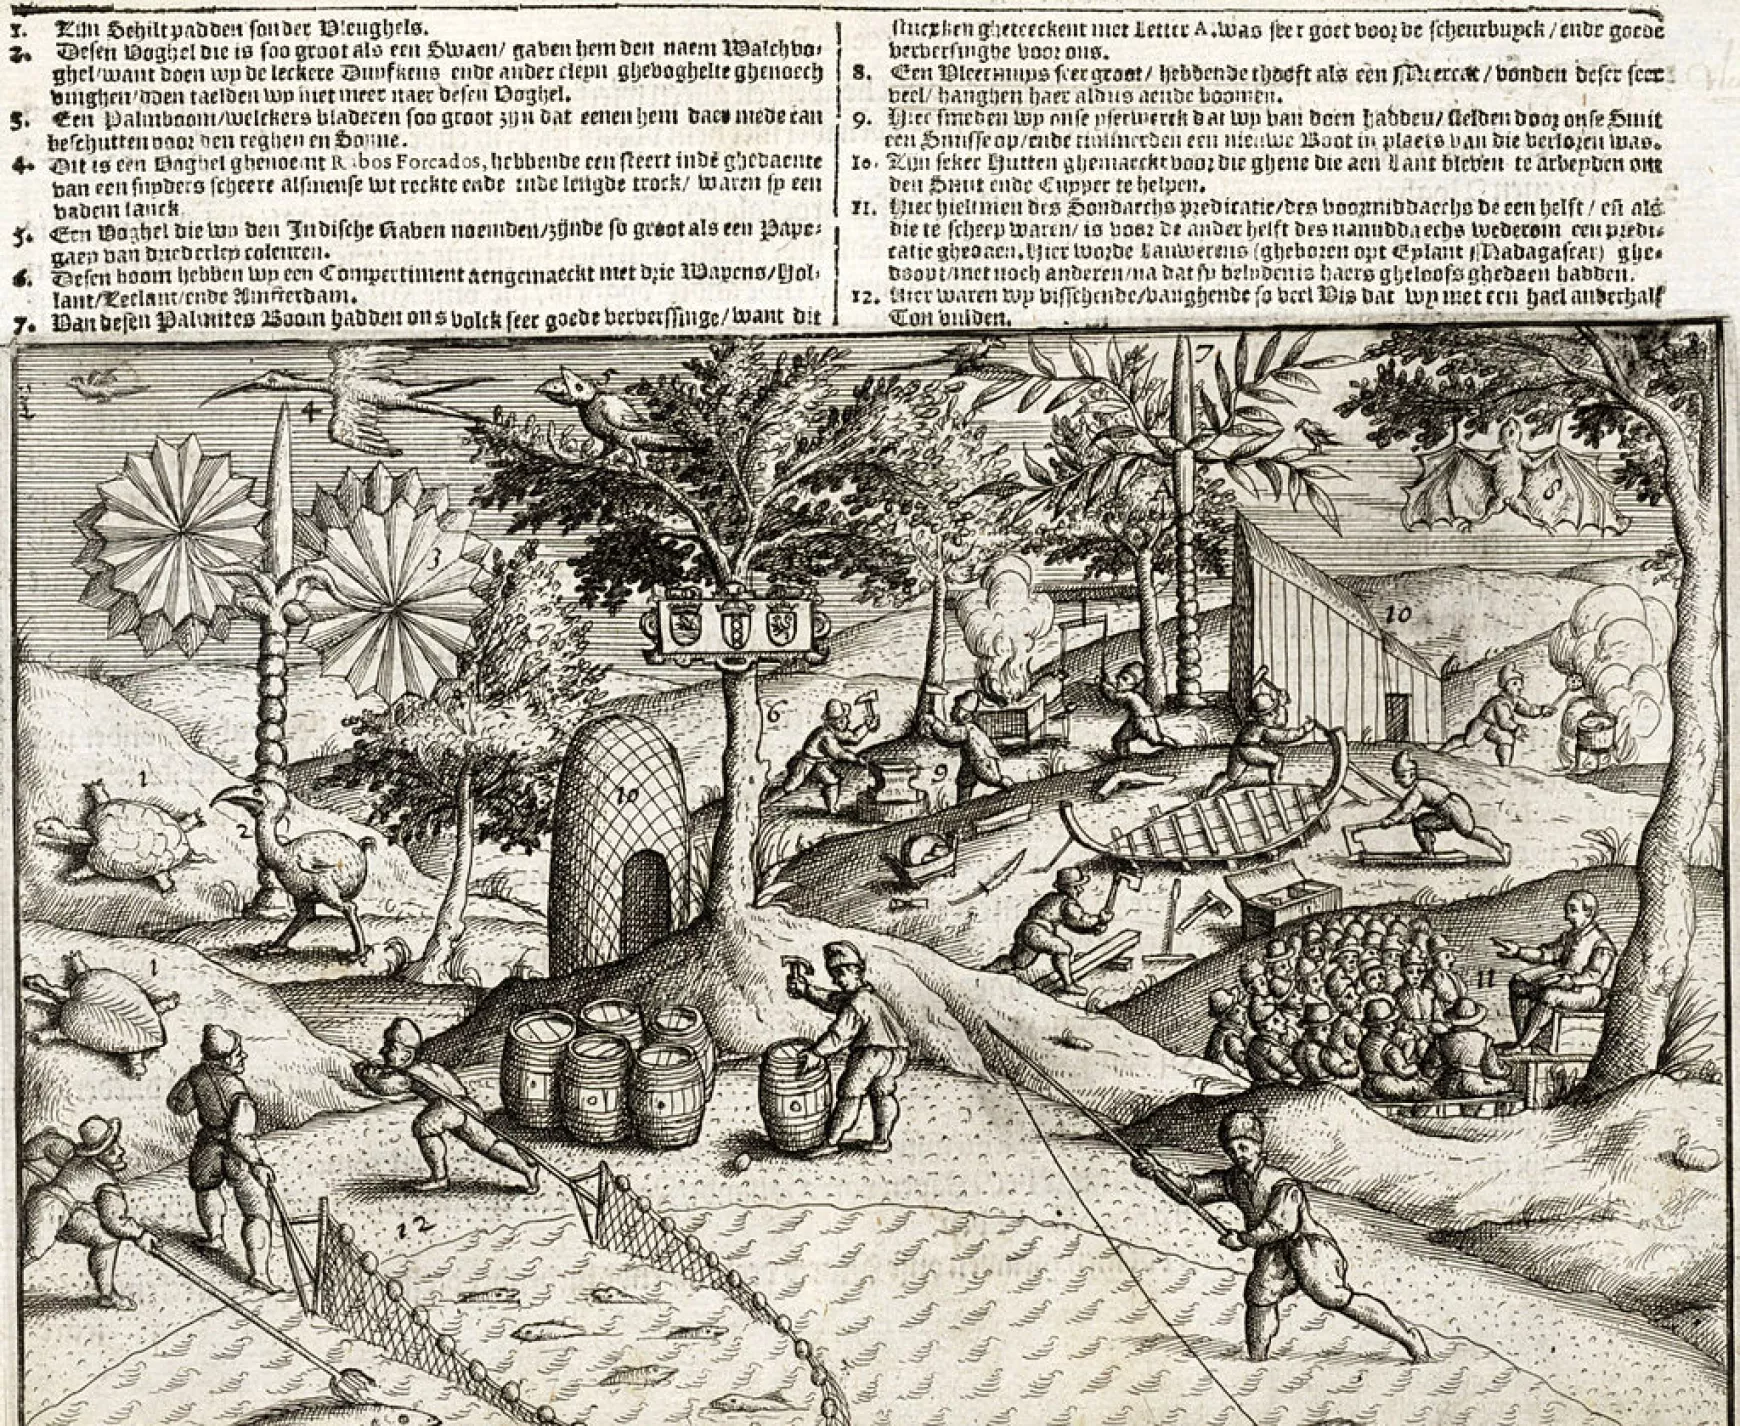 1. Zijn Schiltpadden sonder Vleughels.
2. Desen Voghel die is soo groot als een Swaen/ gaven hem den naem Walchvo-
ghel/want doen wy de leckere Duyfkens ende ander cleyn ghevoghelte ghenoech
vinghen/doen taelden wy niet meer naer desen Voghel.
3. Een Palmboom/welckers bladeren soo groot zijn dat eenen hem daer mede can
beschutten voor den reghen en Sonne.
4. Dit is een Voghel ghenoemt Rabos Forcados, hebbende een steert inde ghedaente
van een snyders scheere alsmense wt reckte ende inde lengde trock/ waren sy een
vadem lanck
5. Een Voghel die wy den Indische Raven noemden/zijnde so groot als een Pape-
gaey van driederley coleuren.
6. Desen boom hebben wy een Compertiment aengemaeckt met drie Wapens/Hol-
lant/Zeelant/ende Amsterdam.
7. Van desen Palmites Boom hadden ons volck seer goede ververssinge/want dit
stucxken gheteeckent met Letter A. was seer goet voor de scheurbuyck/ende goede
verversinghe voor ons.
8. Een Vleermuys seer groot/ hebbende thooft als een Meercat/ vonden deser seer
veel/ hanghen haer aldus aende boomen.
9. Hier smeden wy onse yserwerck dat wy van doen hadden/ stelden door onse Smit
een Smisse op/ende timmerden een nieuwe Boot in plaets van die verloren was.
10. Zijn seker Hutten ghemaeckt voor die ghene die aen Lant bleven te arbeyden om
den Smit ende Cuyper te helpen.
11. Hier hieltmen des Sondaechs predicatie/des voormiddaechs de een helft/ en als
die te scheep waren/ is voor de ander helft des namiddaechs wederom een predi-
catie ghedaen. Hier worde Lauwerens (gheboren opt Eylant Madagascar) ghe-
doopt/met noch anderen/na dat sy belydenis haers gheloofs ghedaen hadden.
12. Hier waren wy visschende/vanghende so veel Vis dat wy met een hael anderhalf
Ton vulden.
4
7
8
3
10
6
1
9
10
2
1
11
12